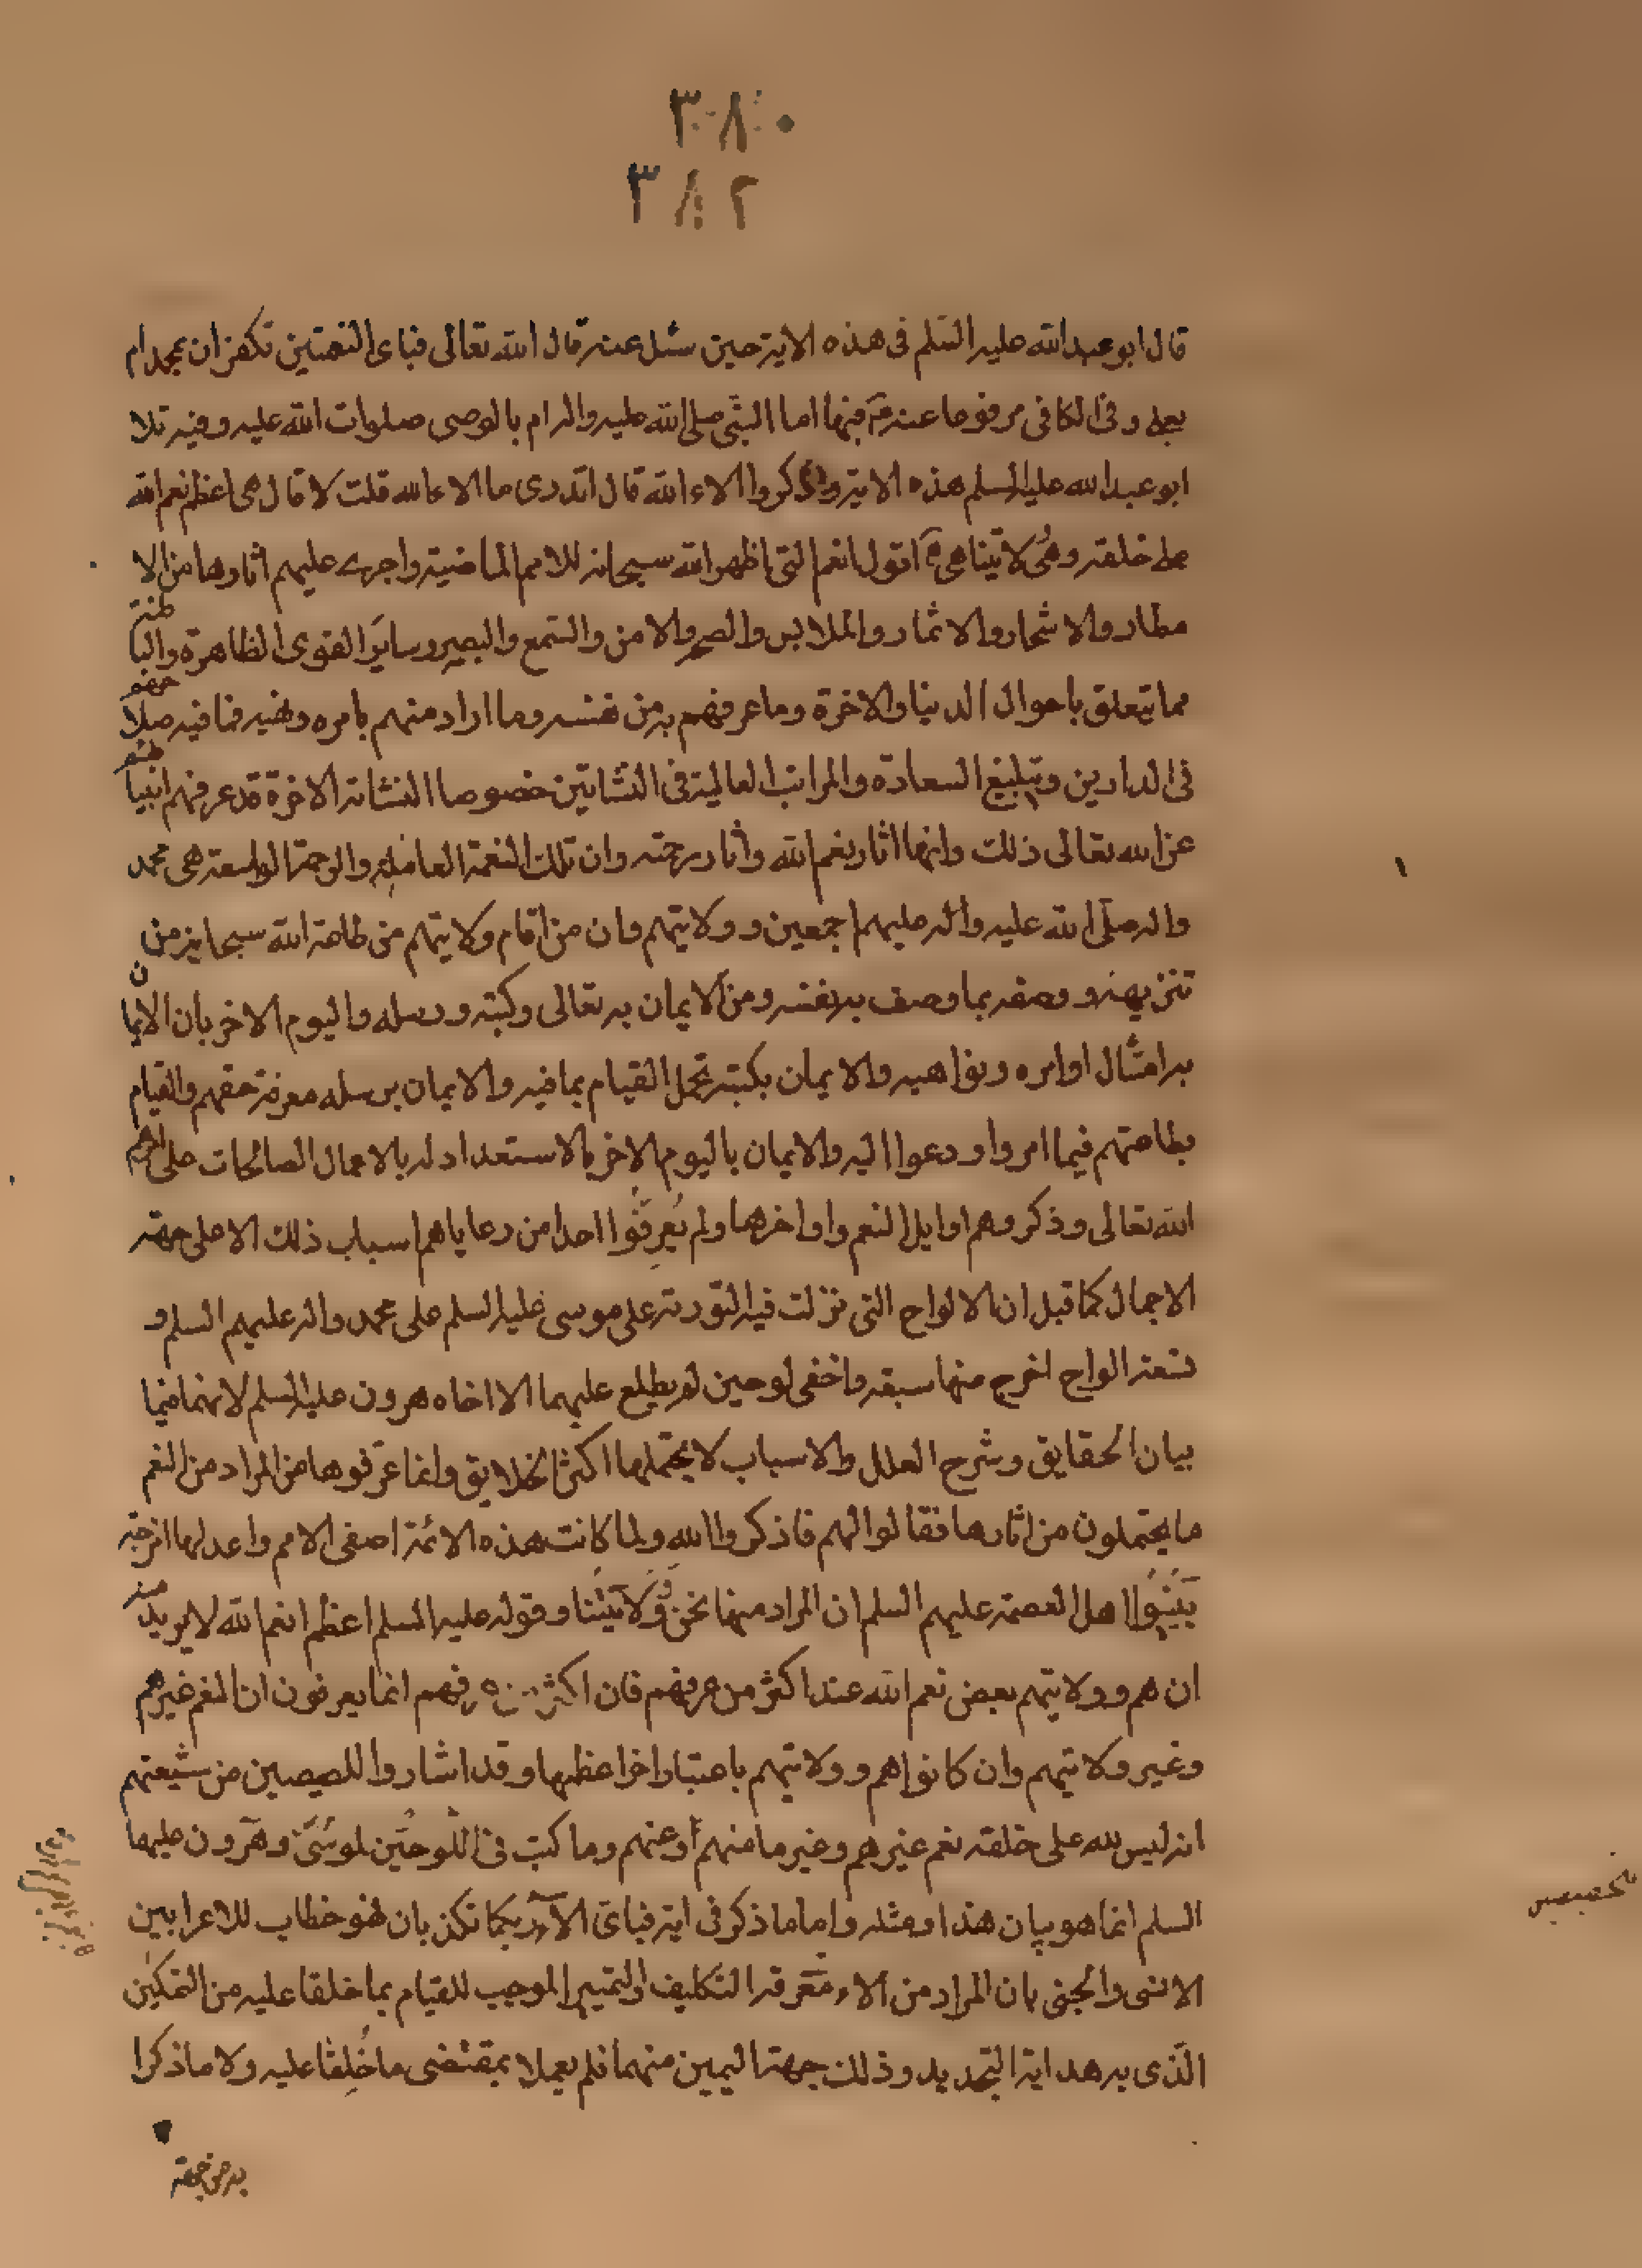 ٣٨٠
٣٨٢
قال ابو عبدالله عليه السلم فى هذه الاية حين سئل عنه قال الله تعالى فباى النعمتين تكفران بمحمد ام
بعلى وفى الكافى مرفوعا عنه فيها اما النبى صلى الله عليه واله ام بالوصى صلوات الله عليه وفيه تلا
ابو عبد الله عليه السلم هذه الاية واذكروا الاء الله قال اتدرى ما الاء الله قلت لا قال هى اعظم نعم الله
على خلقه وهى ولايتنا هى اقول النعم التى اظهر الله سبحانه للامم الماضية واجرى عليهم اثارها من الا
مطار والاشجار والاثمار والملابس والصحة والامن والسمع والبصر وساير القوى الظاهرة والباطنة
مما يتعلق باحوال الدنيا والاخرة وما عرفهم به من نفسه وما اراد منهم بامره ونهيه فما فيه صلاحهم
فى الدارين وتبليغ السعادة والمراتب العالية فى النشاتين خصوصا النشاة الاخرة قد عرفهم انبياؤهم
عن الله تعالى ذلك وانها اثار نعم الله واثار رحمته وان تلك النعمة والرحمة الواسعة هى محمد
واله صلى الله عليه واله عليهم اجمعين وولايتهم وان من اقام ولايتهم من طاعة الله سبحانه من
تنزيهه ووصفه بما وصف به نفسه ومن الايمان به تعالى وكتبه ورسله واليوم الاخر بان الايمان
به امتثال اوامره ونواهيه والايمان بكتبه تحمل القيام بما فيه والايمان برسله معرفة حقهم والقيام
بطاعتهم فيما امروا ودعوا اليه والايمان باليوم الاخر بالاستعداد له بالاعمال الصالحات
الله تعالى وذكروهم اوايل النعم واواخرها ولم يعرفوا احدا من رعاياهم اسباب ذلك الا على جهة
الاجمال كما قيل ان الالواح التى نزلت فيه التورية على موسى عليه السلم على محمد واله عليهم السلم و
تسعة الواح اخرج منها سبعة واخفى لوحين لم يطلع عليهما الا اخاه هرون عليه السلم لانهما فيها
بيان الحقايق وشرح العلل والاسباب لا يحتملها اكثر الخلايق وانما عرفوها من المراد من النعم
ما يحتملون من اثارها فقالوا لهم فاذكروا الاء الله ولما كانت هذه الائمة اصفى الامم واعدلها امزجة
بينوا اهل العصمة عليهم السلم ان المراد منها نحن وولايتنا وقوله عليه السلم اعظم نعم الله لا يريد منه
ان هم وولايتهم بعض نعم الله عند اكثر من عرفهم فان اكثر انما يعرفون ان النعم غيرهم
وغير ولايتهم وان كانوا هم وولايتهم باعتبار اخر اعظمها وقد اشاروا للخصيصين من شيعتهم
انه ليس لله على خلقه نعم غيرهم وغير ما منهم او عنهم وما كتب فى اللوحين لموسى وهرون عليهما
السلم انما هو بيان هذا ومثله واما ما ذكر فى اية فباى الاء ربكما تكذبان فهو خطاب للاعرابيين
الانسى والجنى بان المراد من الاء معرفة التكليف والتمييز الموجب للقيام بما خلقا عليه من التمكين
الذى به هداية النجدين وذلك جهة اليمين منهما فلم يعملا بمقتضى ما خلقا عليه ولا ما ذكرا